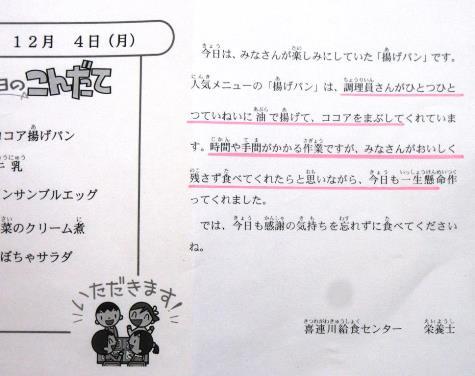 12月 4日(月)
日のこんだて
ココア揚げパン
牛乳
ンサンブルエッグ
菜のクリーム煮
ぼちゃサラダ
いただきます!
今日は、みなさんが楽しみにしていた「揚げパン」です。
人気メニューの「揚げパン」は、調理員さんがひとつひと
つていねいに油で揚げて、ココアをまぶしてくれていま
す。時間や手間がかかる作業ですが、みなさんがおいしく
残さず食べてくれたらと思いながら、今日も一生懸命作
ってくれました。
では、今日も感謝の気持ちを忘れずに食べてください
ね。
喜連川給食センター 栄養士